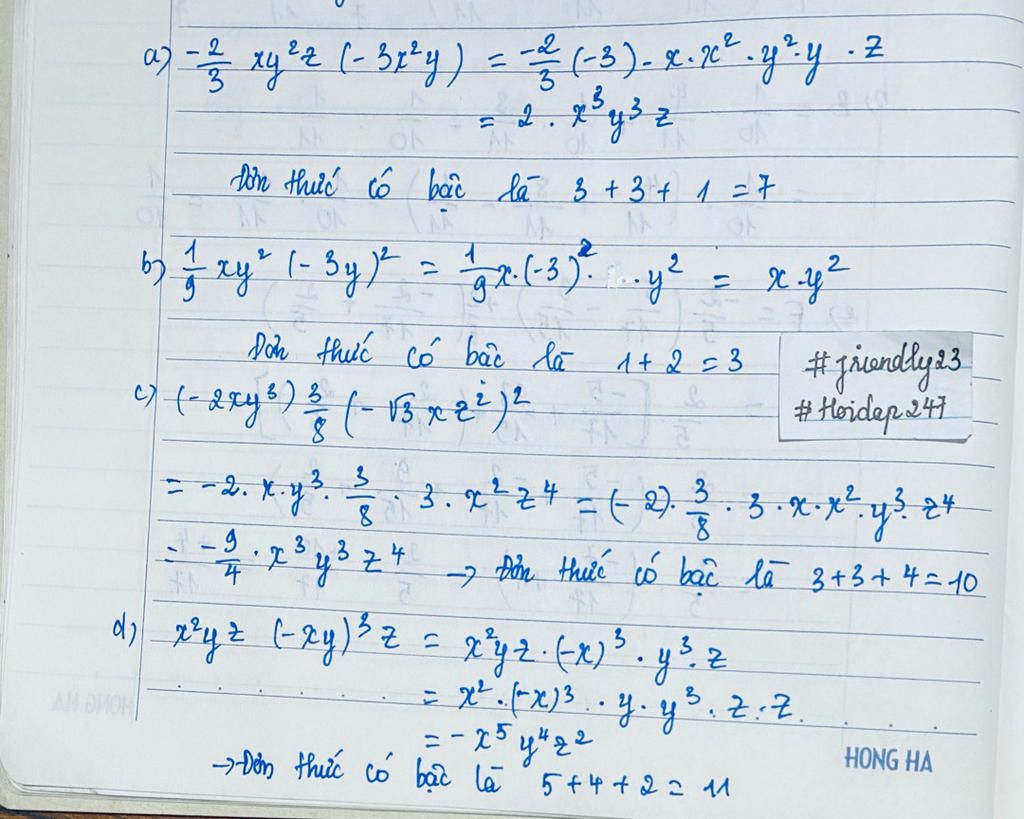 a) -2/3 xy²z (-3x²y) = -2/3 (-3) - x·x²·y²·y·z
= 2·x³y³z
Đơn thức có bậc là 3 + 3 + 1 = 7
b) 1/9 xy² (-3y)² = 1/9 x·(-3)²· y² = x·y²
Đơn thức có bậc là 1 + 2 = 3
#friendly23
#Hoidap247
c) (-2xy³) 3/8 (-√3 x z²)²
= -2·x·y³·3/8·3·x²z⁴ = (-2)·3/8·3·x·x²·y³·z⁴
= -9/4·x³y³z⁴ → Đơn thức có bậc là 3+3+4=10
d) x²yz (-xy)³z = x²yz·(-x)³·y³·z
= x²·(-x)³·y·y³·z·z
= -x⁵y⁴z²
→ Đơn thức có bậc là 5+4+2=11
HONG HA